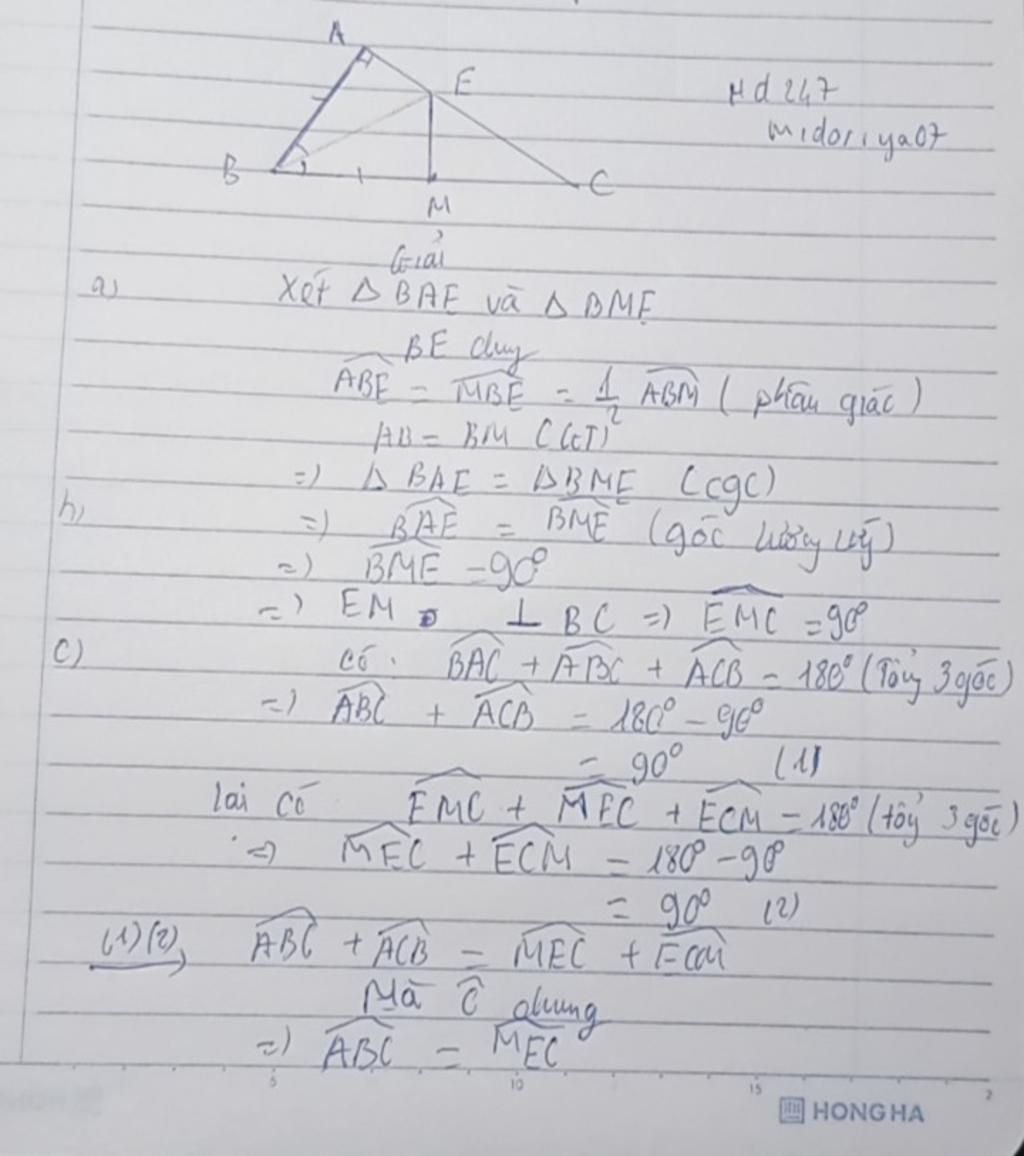 A
E
Hd 247
midoriya07
B
C
M
Giải
a)
Xét △ BAE và △ BME
BE chug
ABE = MBE = 1/2 ABM ( phân giác )
AB = BM (GT)
=) △ BAE = △ BME (cgc)
h)
=) BAE = BME (góc tương ứg)
=) BME = 90°
=) EM ⊥ BC =) EMC = 90°
c)
có : BAC + ABC + ACB = 180° (Tổng 3 góc)
=) ABC + ACB = 180° - 90°
= 90° (1)
lại có EMC + MEC + ECM = 180° (tổng 3 góc)
=) MEC + ECM = 180° - 90°
= 90° (2)
(1)(2), ABC + ACB = MEC + ECM
Mà C chung
=) ABC = MEC
5 10 15 2
HONG HA